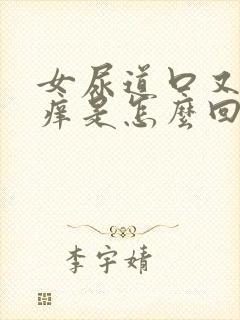 女尿道口又
痒是怎麽回
李宇婧